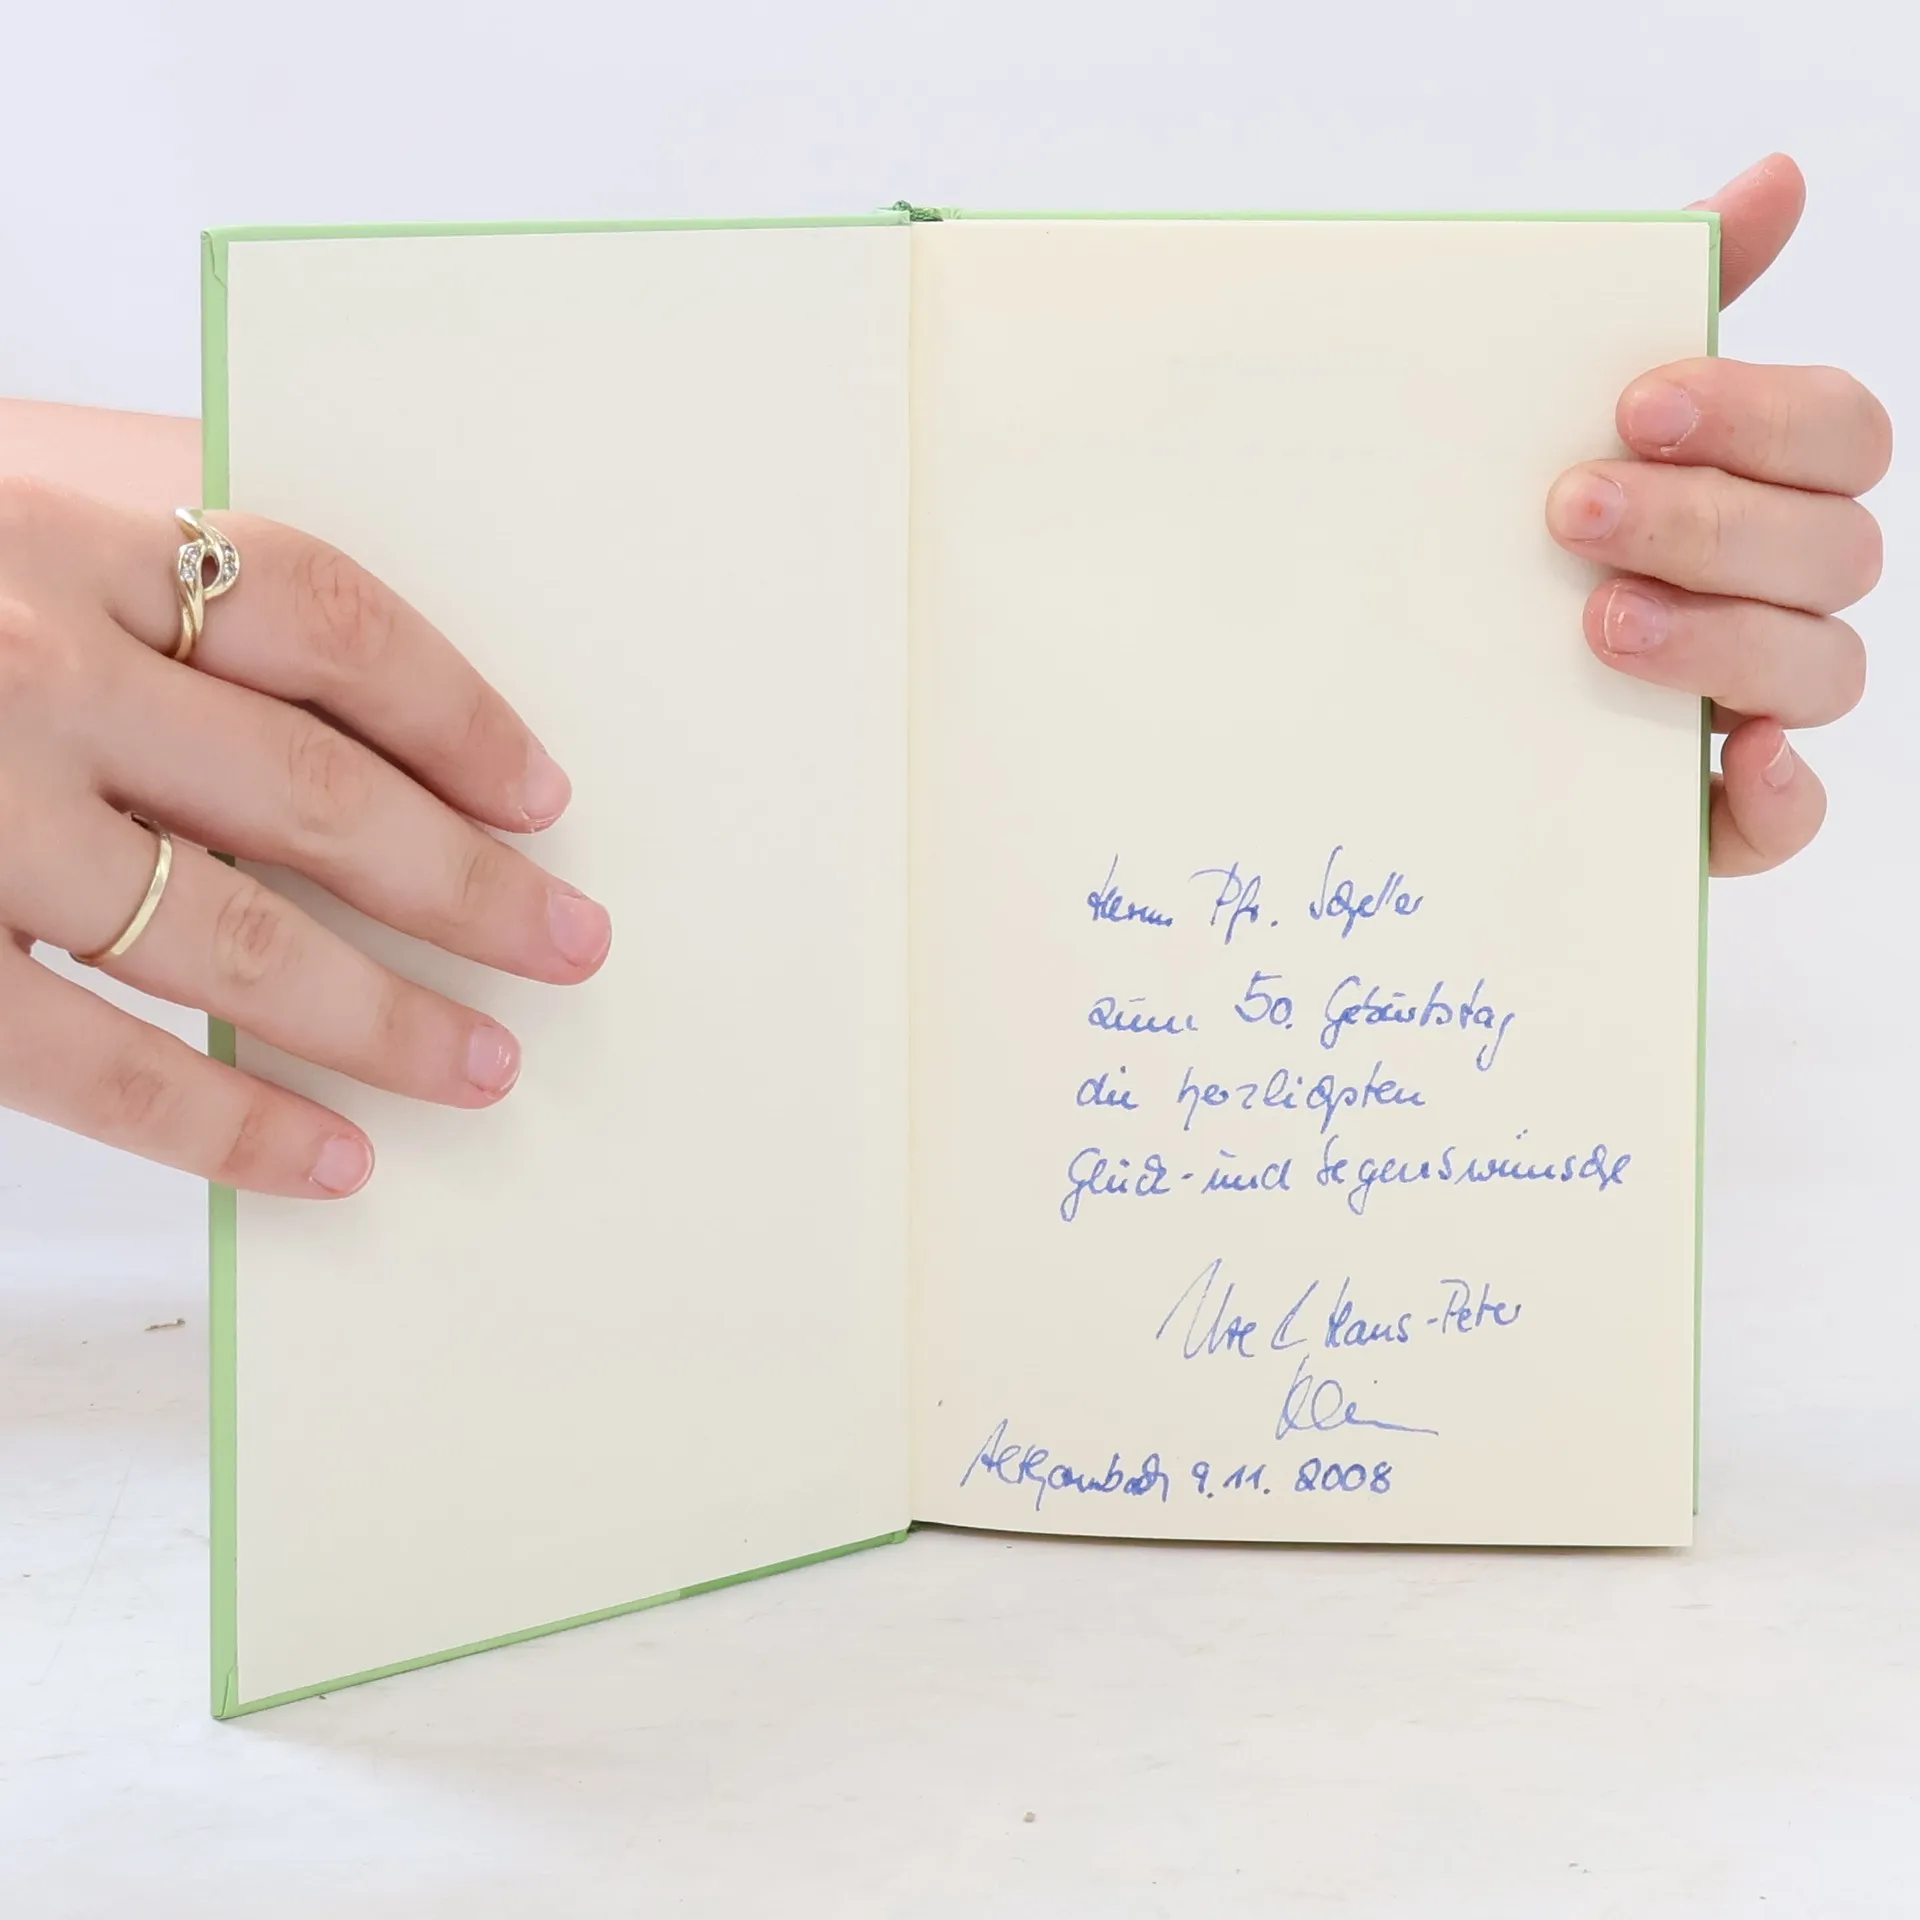 Herrn Pfr. Scheller
zum 50. Geburtstag
die herzlichsten
Glück- und Segenswünsche
Ute & Hans-Peter
Klein
9.11.2008